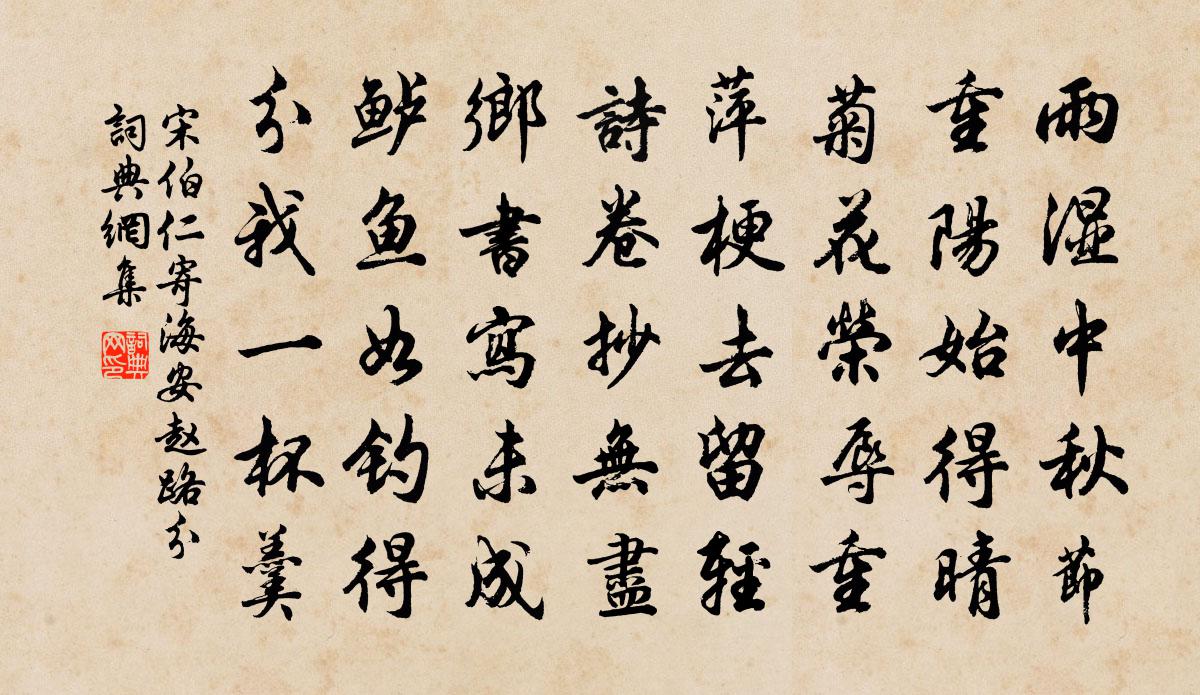 雨濕中秋節
重陽始得晴
菊花榮辱重
萍梗去留輕
詩卷抄無盡
鄉書寫未成
鲈魚如釣得
分我一杯羹
宋伯仁寄海安趙路分
詞典網集
詞典网印